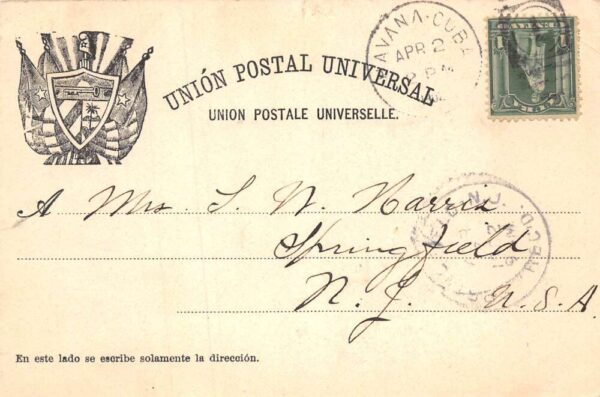 HAVANA · CUBA
APR 2
UNIÓN POSTAL UNIVERSAL
UNION POSTALE UNIVERSELLE.
A Mrs. S. W. Harris
Springfield
N. J. U. S. A.
REC'D.
En este lado se escribe solamente la dirección.